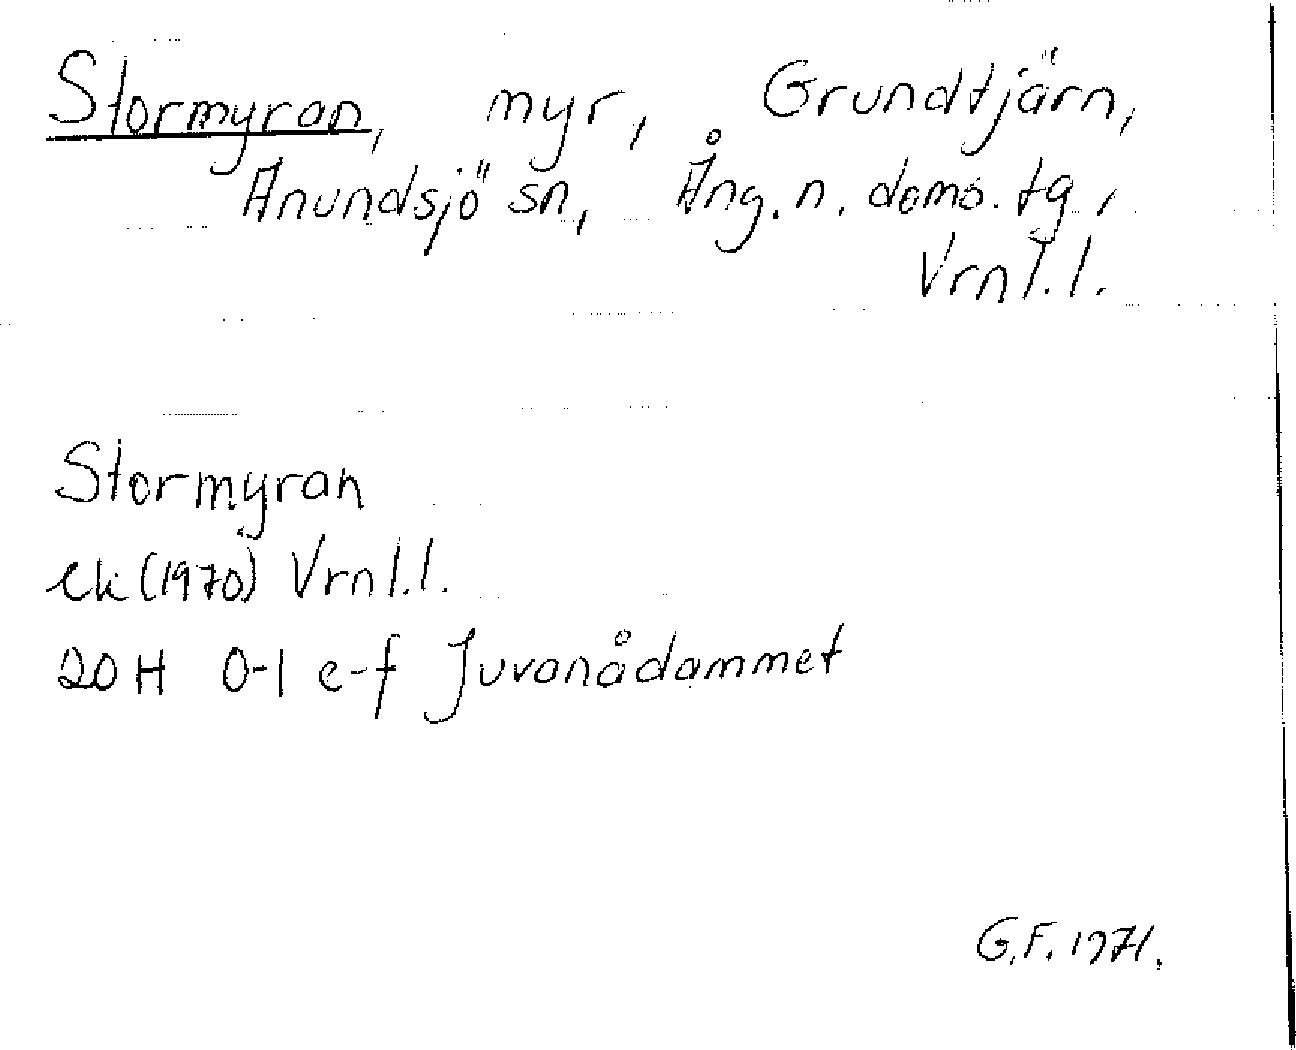 Stormyran, myr, Grundtjärn,
Anundsjö sn, Ång. n. doms. tg,
Vrnl.l.
Stormyran
ek (1970) Vrnl.l.
20H 0-1 e-f Juvanådammet
G.F. 1971.